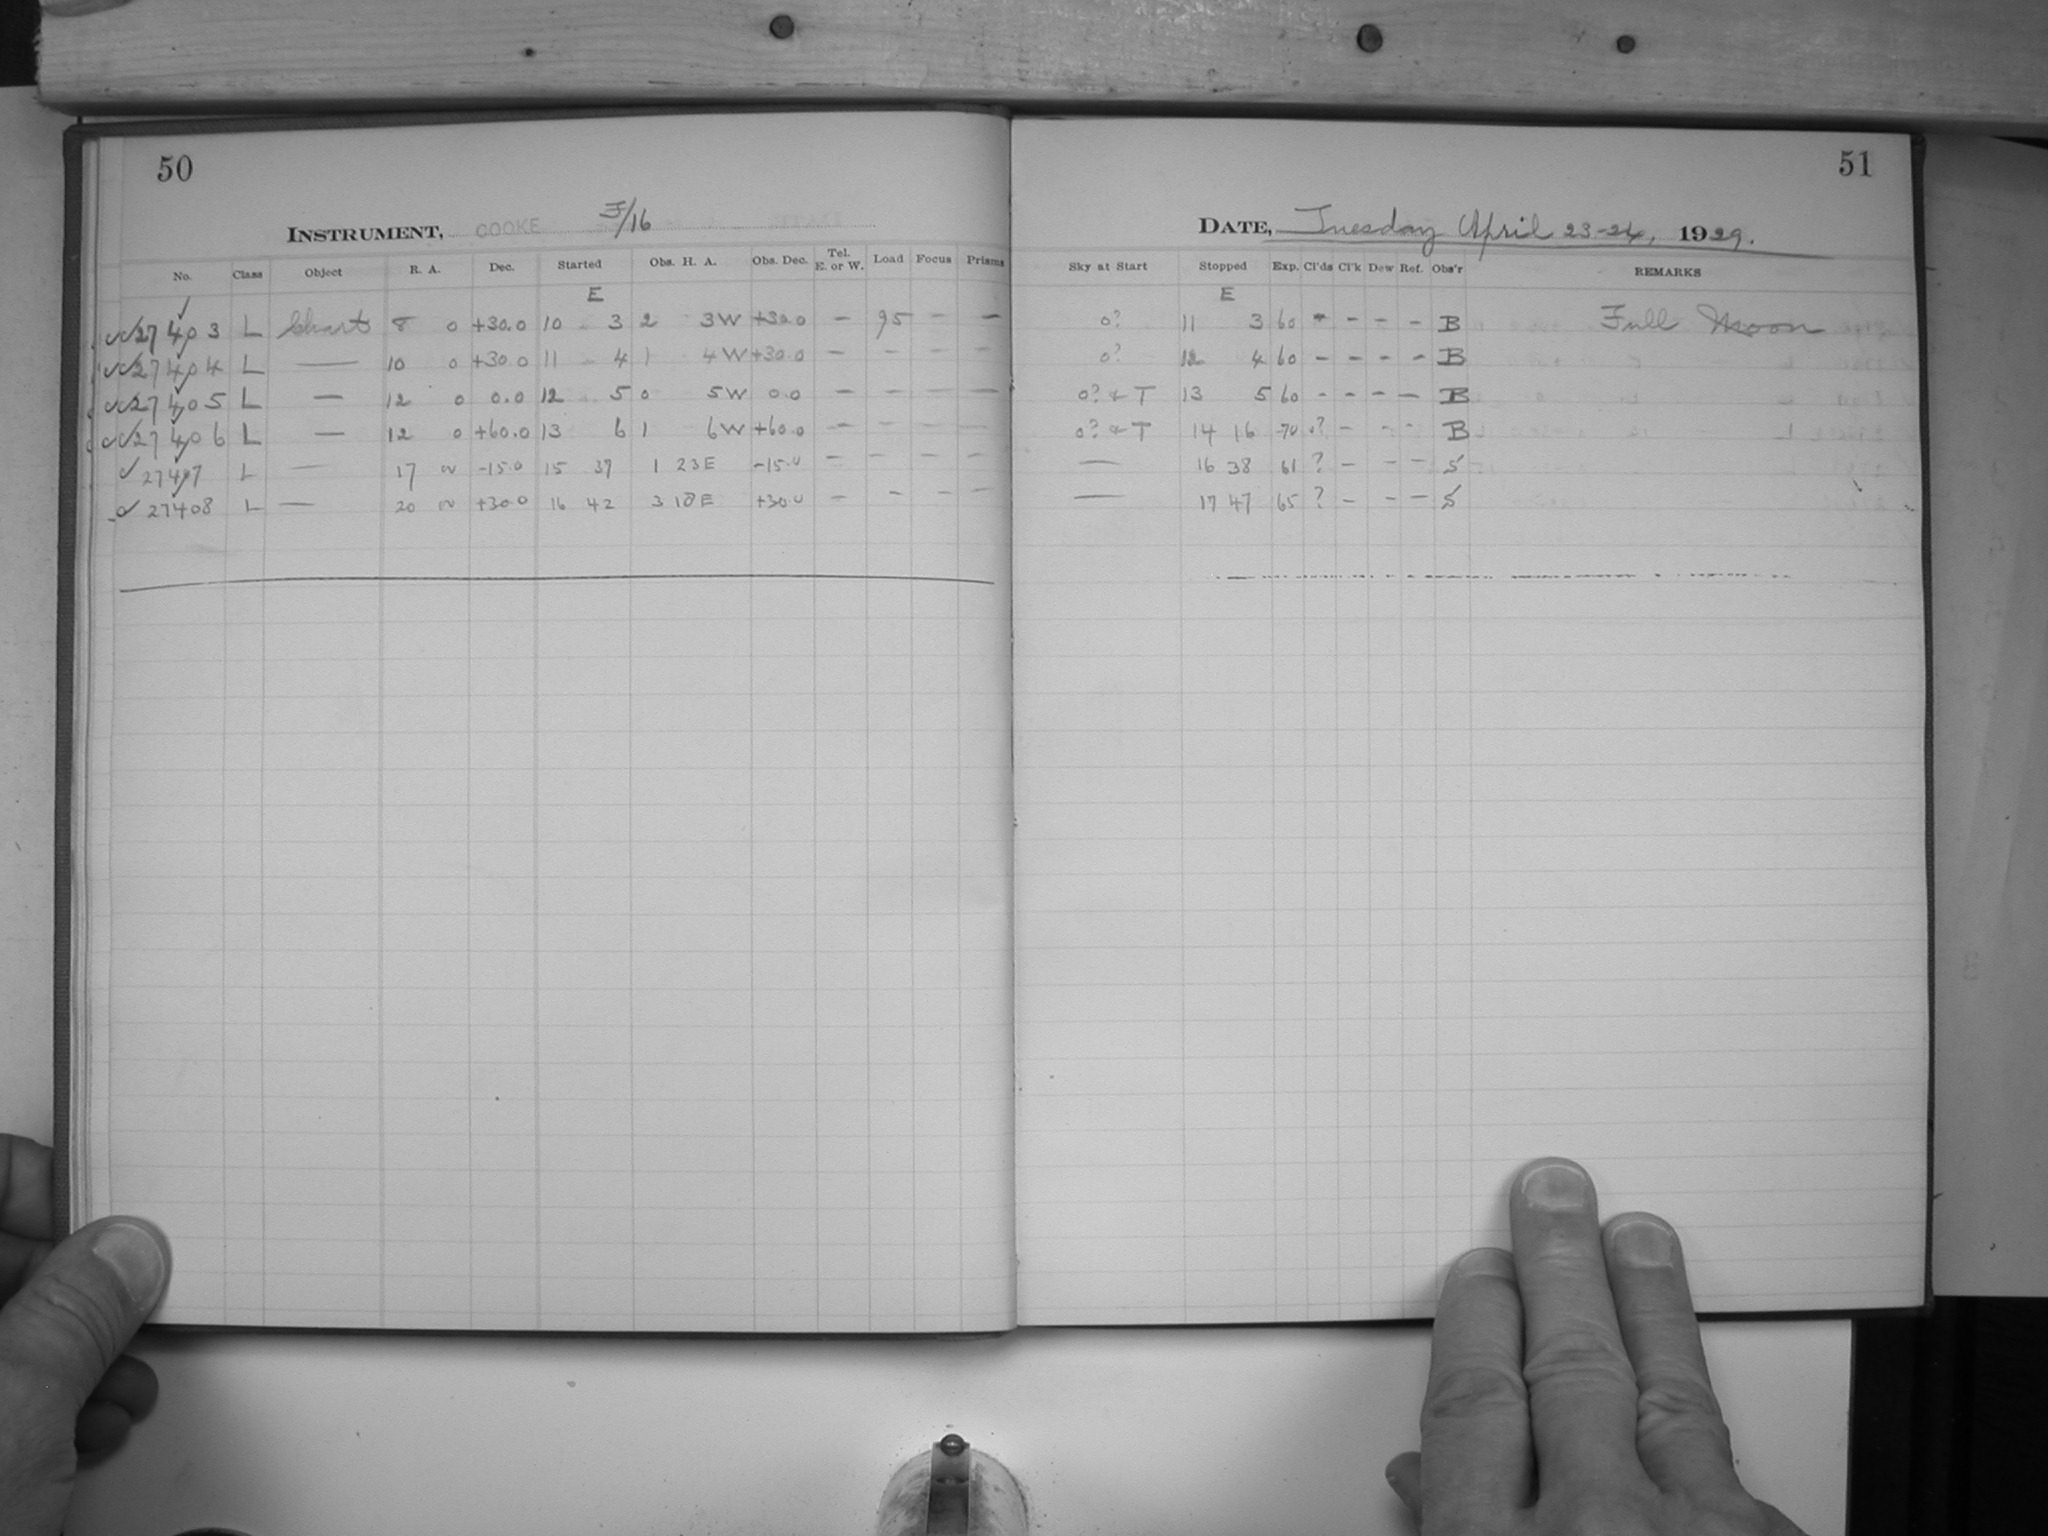 50
INSTRUMENT, COOKE F/16
No. Class Object R. A. Dec. Started Obs. H. A. Obs. Dec. Tel. E. or W. Load Focus Prisms
E
27403 L Chart 8 0 +30.0 10 3 2 3W +30.0 — 95 — —
27404 L — 10 0 +30.0 11 4 1 4W +30.0 — — — —
27405 L — 12 0 0.0 12 5 0 5W 0.0 — — — —
27406 L — 12 0 +60.0 13 6 1 6W +60.0 — — — —
27407 L — 17 -15.0 15 37 1 23E -15.0 — — — —
27408 L — 20 +30.0 16 42 3 18E +30.0 — — — —
51
DATE, Tuesday April 23-24, 1929.
Sky at Start Stopped Exp. Cl'ds Cl'k Dew Ref. Obs'r REMARKS
E
0? 11 3 60 - - - B Full Moon
0? 12 4 60 - - - - B
0? & T 13 5 60 - - - - B
0? & T 14 16 70 ? - - - B
— 16 38 61 ? - - - S
— 17 47 65 ? - - - S